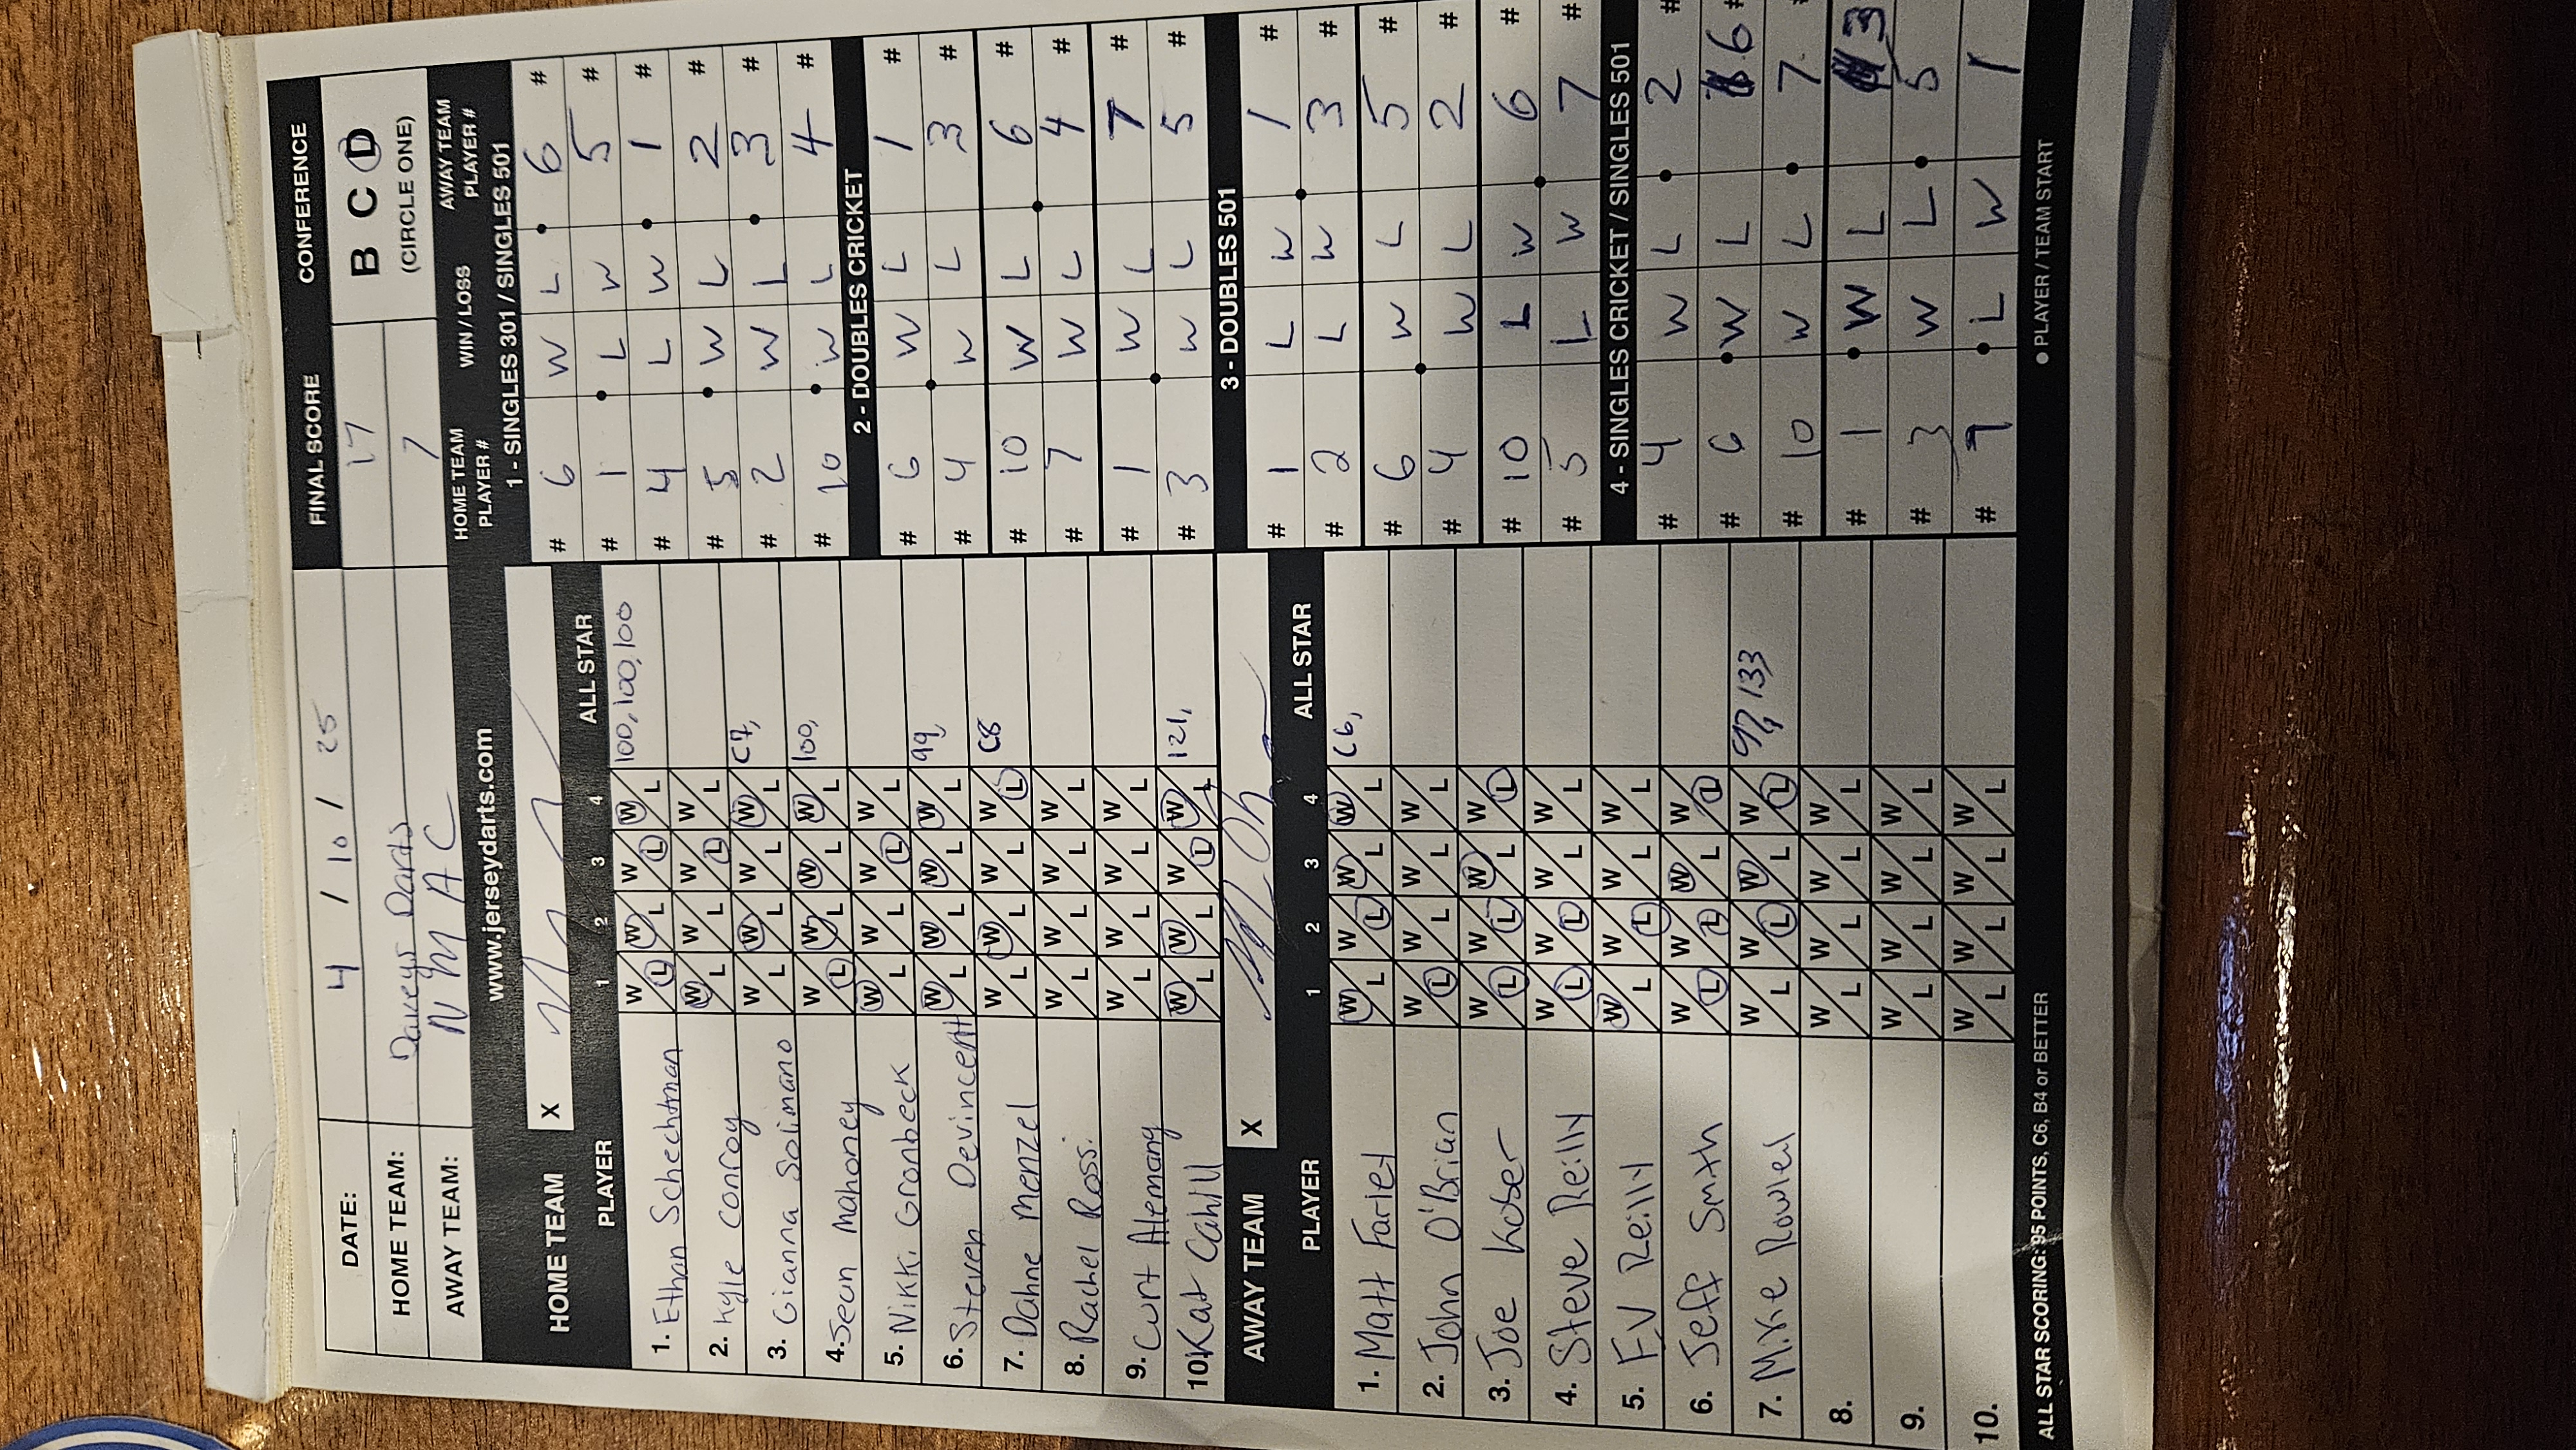 DATE: 4 / 10 / 25 FINAL SCORE CONFERENCE
HOME TEAM: Daveys Darts 17 B C D
AWAY TEAM: N M A C 7 (CIRCLE ONE)
www.jerseydarts.com
HOME TEAM PLAYER # WIN / LOSS AWAY TEAM PLAYER #
HOME TEAM X
PLAYER 1 2 3 4 ALL STAR
1. Ethan Schechtman W L W L W L W L 100, 100, 100
2. Kyle Conroy W L W L W L W L
3. Gianna Solimano W L W L W L W L C7,
4. Sean Mahoney W L W L W L W L 100,
5. Nikki Gronbeck W L W L W L W L
6. Steven Devincentt W L W L W L W L 99,
7. Dahne Menzel W L W L W L W L C8
8. Rachel Ross W L W L W L W L
9. Curt Alemany W L W L W L W L
10. Kat Cahill W L W L W L W L 121,
AWAY TEAM X
PLAYER 1 2 3 4 ALL STAR
1. Matt Fariel W L W L W L W L C6,
2. John O'Brian W L W L W L W L
3. Joe Kober W L W L W L W L
4. Steve Reilly W L W L W L W L
5. F.V Reilly W L W L W L W L
6. Jeff Smith W L W L W L W L
7. Mike Rowler W L W L W L W L 97, 133
8. W L W L W L W L
9. W L W L W L W L
10. W L W L W L W L
1 - SINGLES 301 / SINGLES 501
# 6 W L 6 #
# 1 L W 5 #
# 4 L W 1 #
# 5 W L 2 #
# 2 W L 3 #
# 10 W L 4 #
2 - DOUBLES CRICKET
# 6 W L 1 #
# 4 W L 3 #
# 10 W L 6 #
# 7 W L 4 #
# 1 W L 7 #
# 3 W L 5 #
3 - DOUBLES 501
# 1 L W 1 #
# 2 L W 3 #
# 6 W L 5 #
# 4 W L 2 #
# 10 L W 6 #
# 5 L W 7 #
4 - SINGLES CRICKET / SINGLES 501
# 4 W L 2 #
# 6 W L 6 #
# 10 W L 7
# 1 W L 3
# 3 W L 5
# 7 L W 1
ALL STAR SCORING: 95 POINTS, C6, B4 or BETTER ● PLAYER / TEAM START